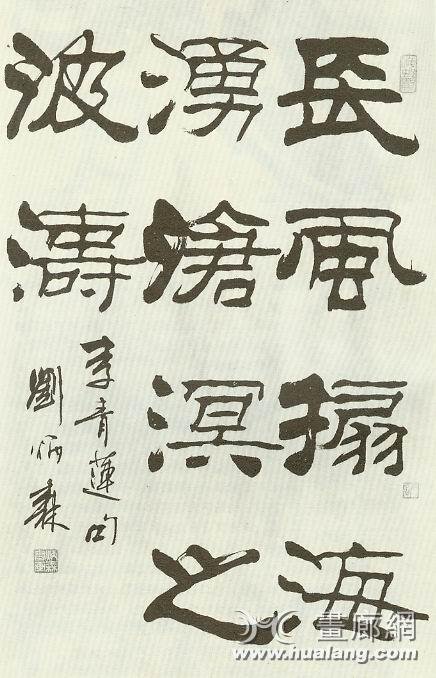 長風搧海
湧滄溟之
波濤
李青蓮句
劉炳森
畫廊網
www.hualang.com